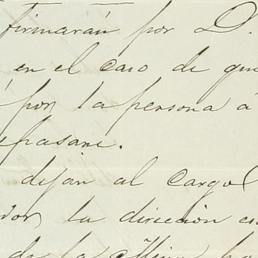 firmarán por D.
en el caso de que
por la persona á
dejan al cargo
la dirección
de la